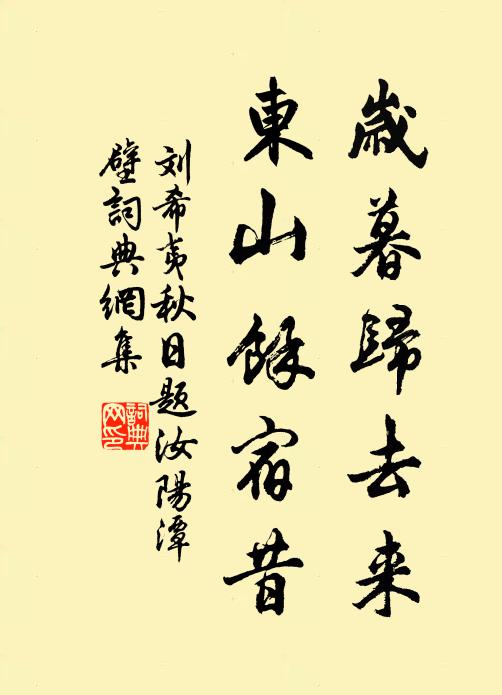 歲暮歸去来
東山餘宿昔
刘希夷秋日題汝陽潭
壁詞典網集
詞典
网印